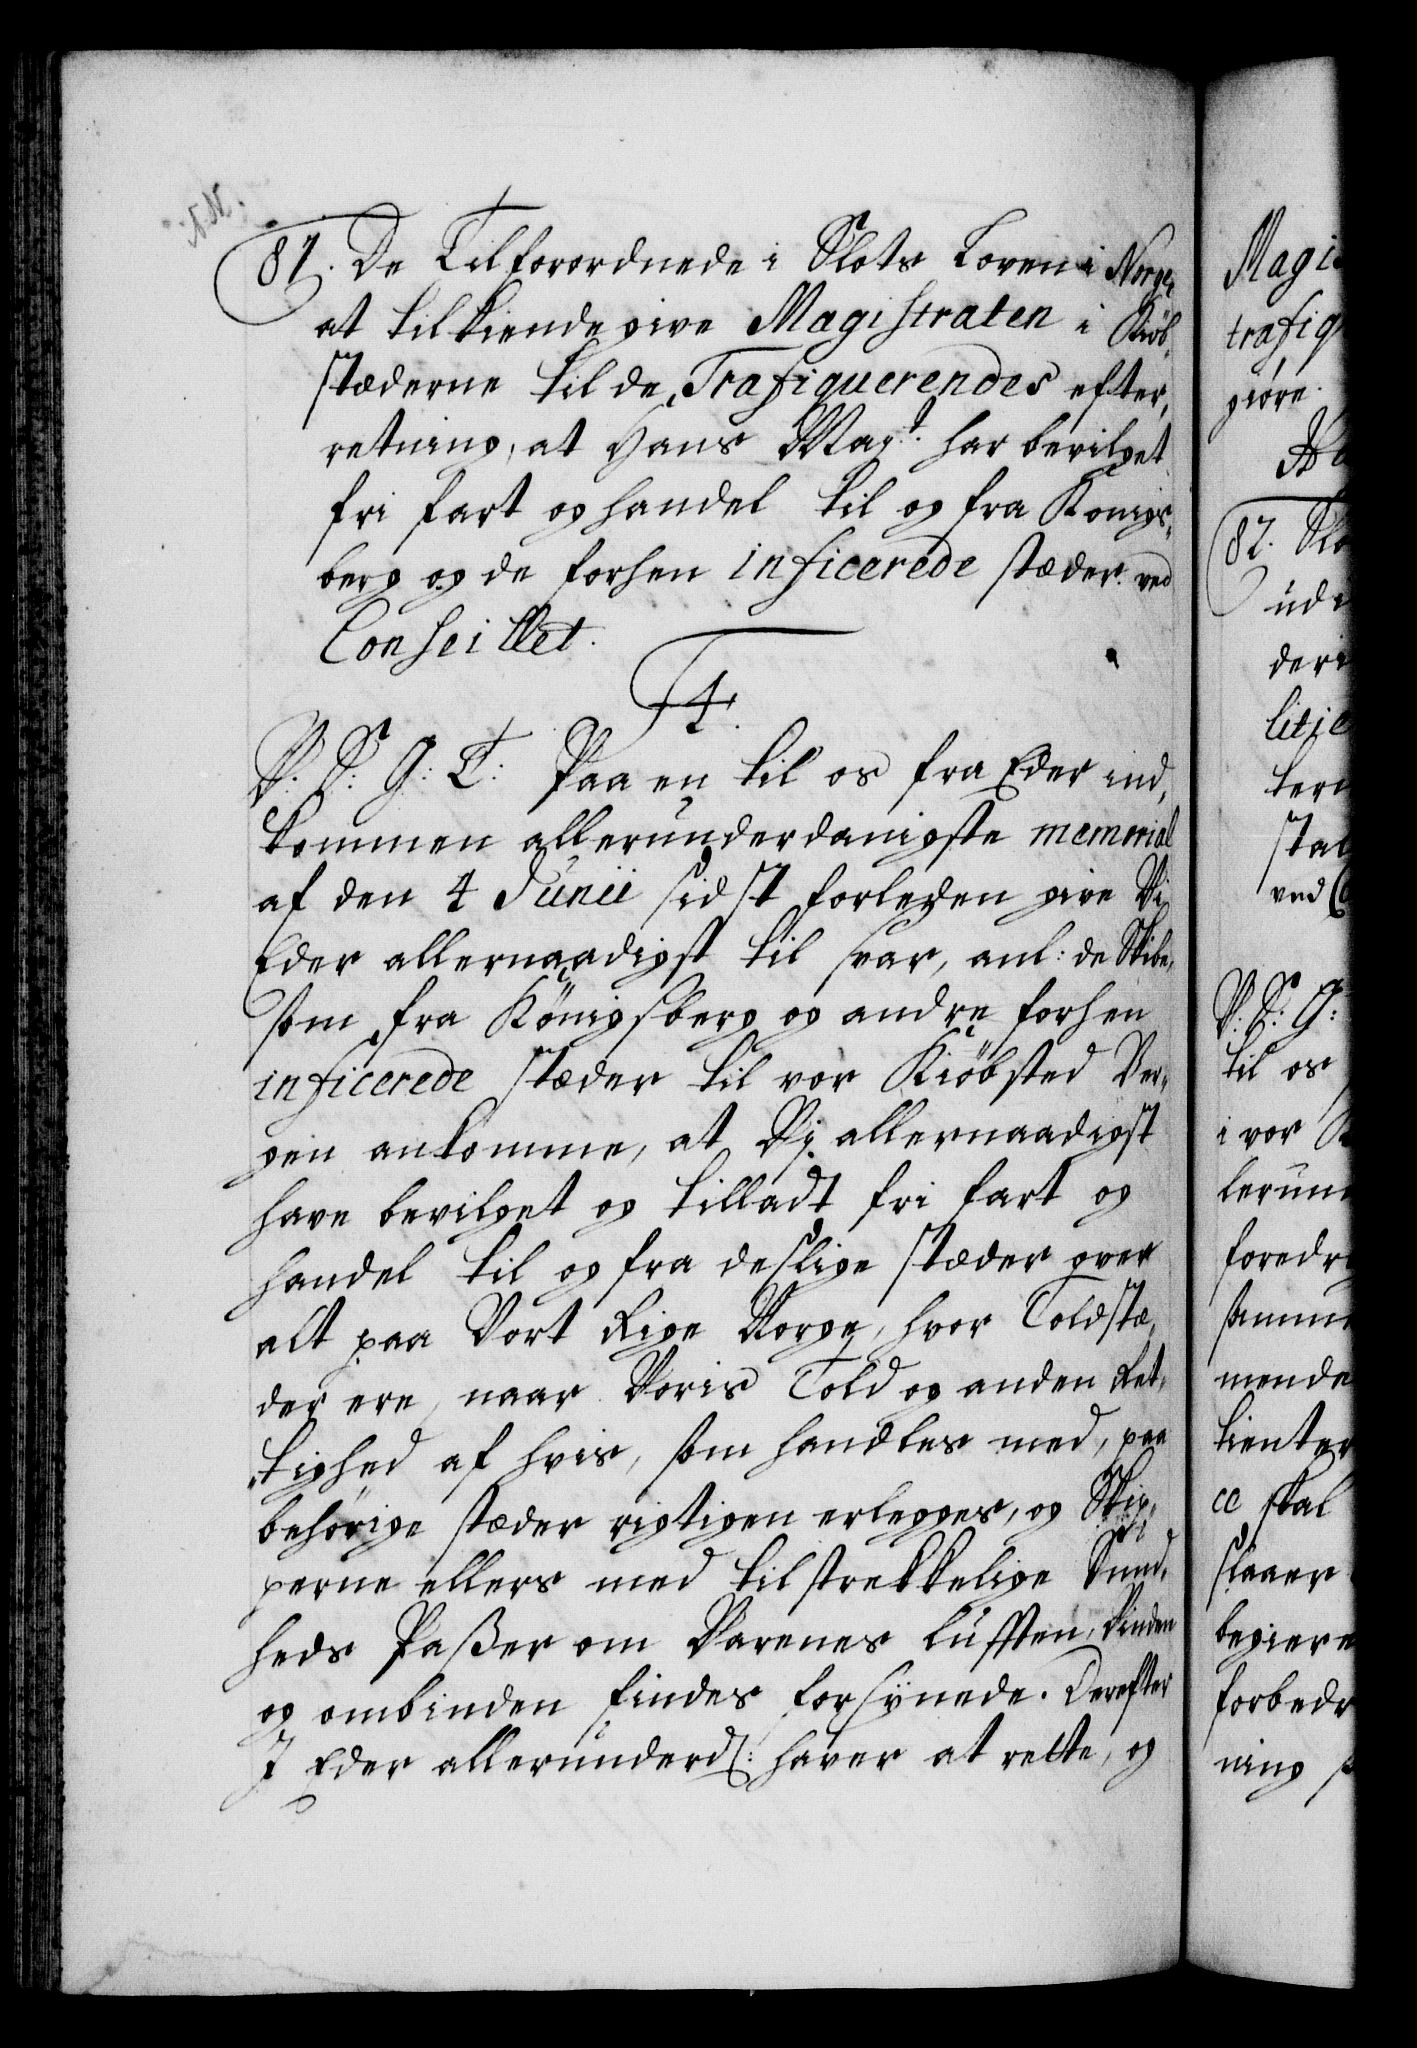 N.N.
81. De Tilforordnede i Slots Loven i Norge,
at tilkiendegive Magistraten i Kiøb-
stæderne til de Trafiquerendes efter,
retning, at Hans Mayt. har bevilget
fri fart og handel til og fra Königs-
berg og de forhen inficerede stæder. ved
Conseillet.
F 4.
V: S: G: T: Paa en til os fra Eder ind,
kommen allerunderdanigste memorial
af den 4 Junii sidst forleden give Vi
Eder allernaadigst til svar, anl: de Skibe,
som fra Königsberg og andre forhen
inficerede stæder til vor Kiöbsted Ber-
gen ankomme, at Vi allernaadigst
have bevilget og tilladt fri fart og
handel til og fra deslige stæder over
alt paa Vort Rige Norge, hvor Toldstæ,
der ere, naar Voris Told og anden Ret,
tighed af hvis, som handles med, paa
behörige stæder rigtigen erlegges, og Skip,
perne ellers med tilstrekkelige Sund,
heds Paßer om Varenes lufften, Vinden
og ombinden findes forsÿnede. Derefter
I Eder allerunderd: haver at rette, og
Magi
trafiq
giøre.
82. Slo
ud
deri
litie
tern
stal
ved C
V: S: G:
til os
i vor
lerun
foredr
samme
mende
tienter
cc skal
slaaer
begiere
forbedr
ning